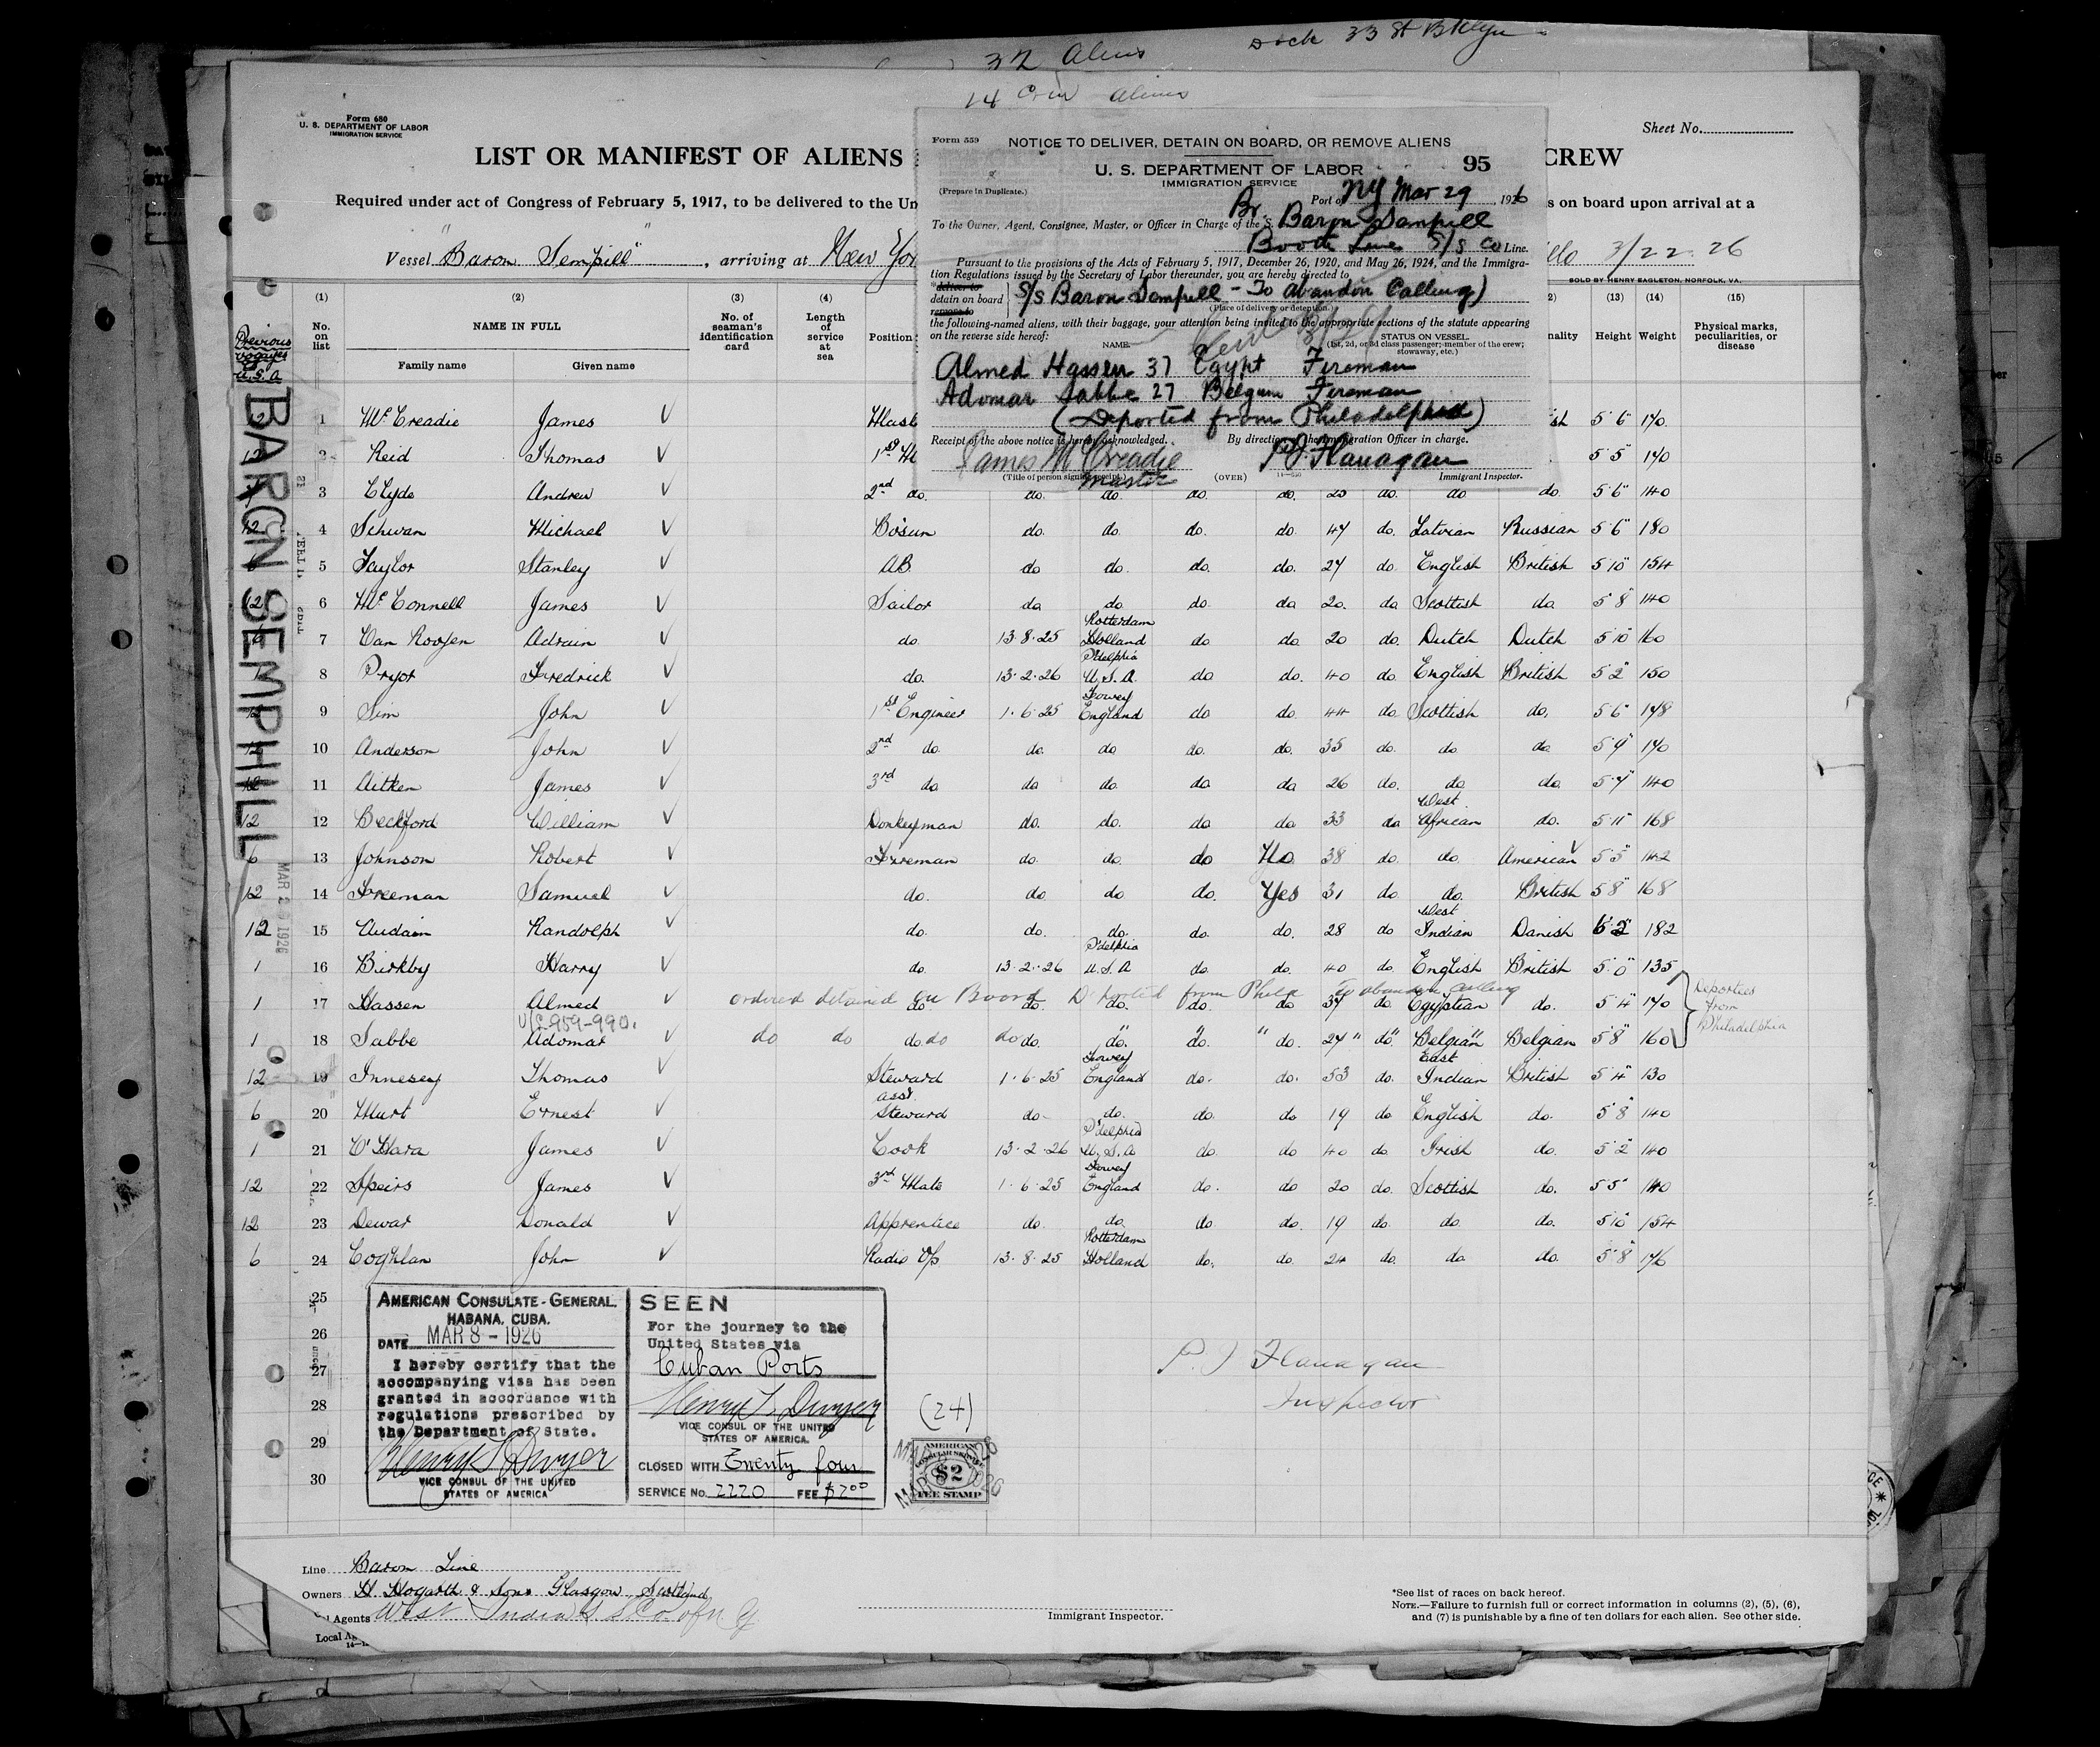 32 Aliens Dock 33 St Bklyn
14 Crew Aliens
Form 680
U. S. DEPARTMENT OF LABOR
IMMIGRATION SERVICE
Sheet No.
LIST OR MANIFEST OF ALIENS
CREW
Required under act of Congress of February 5, 1917, to be delivered to the Un
s on board upon arrival at a
Vessel "Baron Sempill", arriving at New Yor
llo 3/22 26
SOLD BY HENRY EAGLETON, NORFOLK, VA.
Form 559
NOTICE TO DELIVER, DETAIN ON BOARD, OR REMOVE ALIENS
U. S. DEPARTMENT OF LABOR 95
IMMIGRATION SERVICE
(Prepare in Duplicate.)
Port of NY Mar 29, 1926
To the Owner, Agent, Consignee, Master, or Officer in Charge of the Br. S. Baron Sempill
Booth Line S/S Co Line.
Pursuant to the provisions of the Acts of February 5, 1917, December 26, 1920, and May 26, 1924, and the Immigra-
tion Regulations issued by the Secretary of Labor thereunder, you are hereby directed to
*deliver to
detain on board S/S Baron Sempill - To abandon Calling)
remove to
(Place of delivery or detention.)
the following-named aliens, with their baggage, your attention being invited to the appropriate sections of the statute appearing
on the reverse side hereof:
NAME. STATUS ON VESSEL.
(1st, 2d, or 3d class passenger; member of the crew;
stowaway, etc.)
Almed Hassen 37 Egypt Fireman
Adomar Sabbe 27 Belgum Fireman
(Deported from Philadelphia)
Receipt of the above notice is hereby acknowledged. By direction of the Immigration Officer in charge.
James McCreadie P J Flanagan
(Title of person signing receipt.) Master (OVER) Immigrant Inspector.
(1) (2) (3) (4) (13) (14) (15)
No. on list NAME IN FULL No. of seaman's identification card Length of service at sea Position nality Height Weight Physical marks, peculiarities, or disease
Family name Given name
Previous voyages U.S.A
BARON SEMPHILL
MAR 2 1926
12 1 McCreadie James Mast sh 5'6" 140
12 2 Reid Thomas 1st M 5'5" 140
3 Clyde Andrew 2nd do. do. do. do. do. 25 do. do do. 5'6" 140
12 4 Schwan Michael Bosun do. do. do. do. 47 do. Latvian Russian 5'6" 180
6 5 Taylor Stanley AB do do. do. do. 27 do. English British 5'10" 154
12 6 McConnell James Sailor do do do do 20. do Scottish do 5'8" 140
6 7 Van Roojen Adrain do. 13.8.25 Rotterdam Holland do do. 20 do. Dutch Dutch 5'10" 160
1 8 Pryor Fredrick do. 13.2.26 P'delphia U.S.A. do do. 40 do. English British 5'2" 150
12 9 Sim John 1st Engineer 1.6.25 Fowey England do do. 44 do. Scottish do. 5'6" 148
12 10 Anderson John 2nd do. do. do do. do. 35 do. do do 5'9" 140
12 11 Aitken James 3rd do do do. do do 26 do. do. do. 5'7" 140
12 12 Beckford William Donkeyman do. do. do do 33 do West African do. 5'11" 168
6 13 Johnson Robert Fireman do. do. do No 38 do. do. American 5'5" 142
12 14 Freeman Samuel do. do do do. Yes 31 do do. British 5'8" 168
12 15 Audain Randolph do. do. do. do. do. 28 do West Indian Danish 6'2" 182
1 16 Birkby Harry do. 13.2.26 P'delphia U.S.A do. do. 40 do. English British 5'0" 135
1 17 Hassen Almed do. do. do. do. do 37 do. Egyptian do. 5'4" 140
ordered detained on Board Deported from Phila to abandon calling
V/L 959-990.
1 18 Sabbe Adomar do do do do do do. do. do. do. 27 do. Belgian Belgian 5'8" 160
Deportees from Philadelphia
12 19 Innesey Thomas Steward 1.6.25 Fowey England do. do. 53 do. East Indian British 5'4" 130
6 20 Murt Ernest Asst. Steward do do. do. do 19 do English do. 5'8" 140
1 21 O'Hara James Cook 13.2.26 P'delphia U.S.A do. do 40 do. Irish do. 5'2" 140
12 22 Speirs James 3rd Mate 1.6.25 Fowey England do. do 20 do. Scottish do. 5'5" 140
12 23 Dewar Donald Apprentice do. do. do. do. 19 do. do. do. 5'10" 154
6 24 Coghlan John Radio O/p 13.8.25 Rotterdam Holland do. do. 24 do. do. do. 5'8" 146
25
26
27
28
29
30
AMERICAN CONSULATE-GENERAL.
HABANA, CUBA.
DATE MAR 8 - 1926
I hereby certify that the
accompanying visa has been
granted in accordance with
regulations prescribed by
the Department of State.
Henry T. Dwyer
VICE CONSUL OF THE UNITED
STATES OF AMERICA
SEEN
For the journey to the
United States via
Cuban Ports
Henry T. Dwyer
VICE CONSUL OF THE UNITED
STATES OF AMERICA.
CLOSED WITH Twenty four
SERVICE No. 2220 FEE $2.00
(24)
AMERICAN
CONSULAR SERVICE
$2
FEE STAMP
P. J Flanagan
Inspector
Line Baron Line
Owners H Hogarth & Sons Glasgow Scotland
Agents West India S S Co of N.Y.
Local
Immigrant Inspector.
*See list of races on back hereof.
NOTE.—Failure to furnish full or correct information in columns (2), (5), (6),
and (7) is punishable by a fine of ten dollars for each alien. See other side.